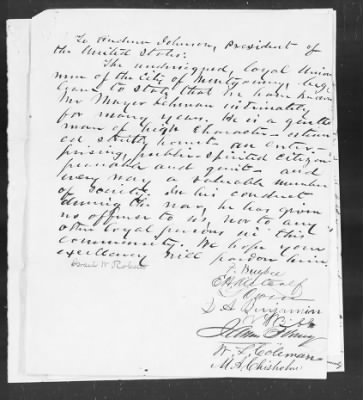 To Andrew Johnson, President of
the United States:
The undersigned, loyal Union
men of the City of Montgomery, beg
leave to state that we have known
Mr Mayer Lehman intimately
for many years. He is a gentle
man of high character - esteem
ed strictly honest - an enter-
prising, public spirited citizen
peaceable and quiet - and
every way a valuable member
of society. In his conduct
during the war, he has given
no offence to us, nor to any
other loyal persons in this
community. We hope your
excellency will pardon him.
D. A. Benjamin
W. J. Coleman
M. A. Chisholm